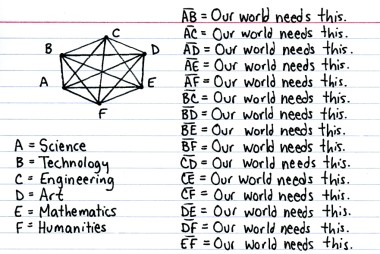 C
B
D
A
E
F
A = Science
B = Technology
C = Engineering
D = Art
E = Mathematics
F = Humanities
A̅B̅ = Our world needs this.
A̅C̅ = Our world needs this.
A̅D̅ = Our world needs this.
A̅E̅ = Our world needs this.
A̅F̅ = Our world needs this.
B̅C̅ = Our world needs this.
B̅D̅ = Our world needs this.
B̅E̅ = Our world needs this.
B̅F̅ = Our world needs this.
C̅D̅ = Our world needs this.
C̅E̅ = Our world needs this.
C̅F̅ = Our world needs this.
D̅E̅ = Our world needs this.
D̅F̅ = Our world needs this.
E̅F̅ = Our world needs this.